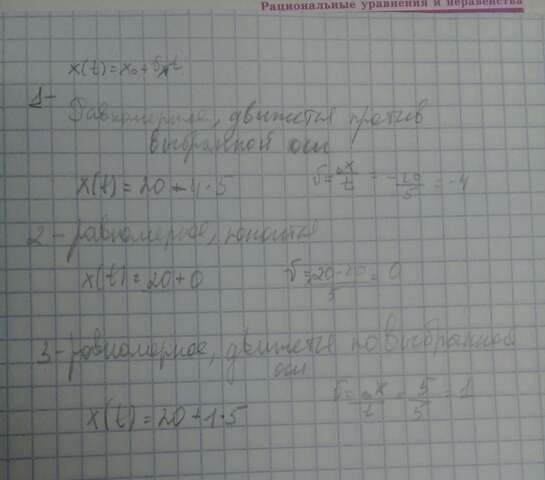 Рациональные уравнения и неравенства
x(t) = x₀ + υₓt
1 - Равномерное, движется против
выбранной оси
x(t) = 20 - 4·5
υ = Δx/t = -20/5 = -4
2 - равномерное,
x(t) = 20 + 0
υ = 20-20/5 = 0
3 - равномерное, движется по выбранной
оси
υ = Δx/t = 5/5 = 1
x(t) = 20 + 1·5